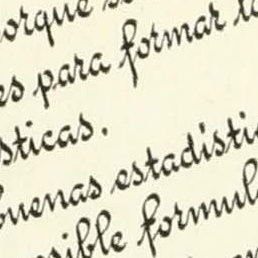 orque
es para formar
sticas.
buenas estadísti
sible formul